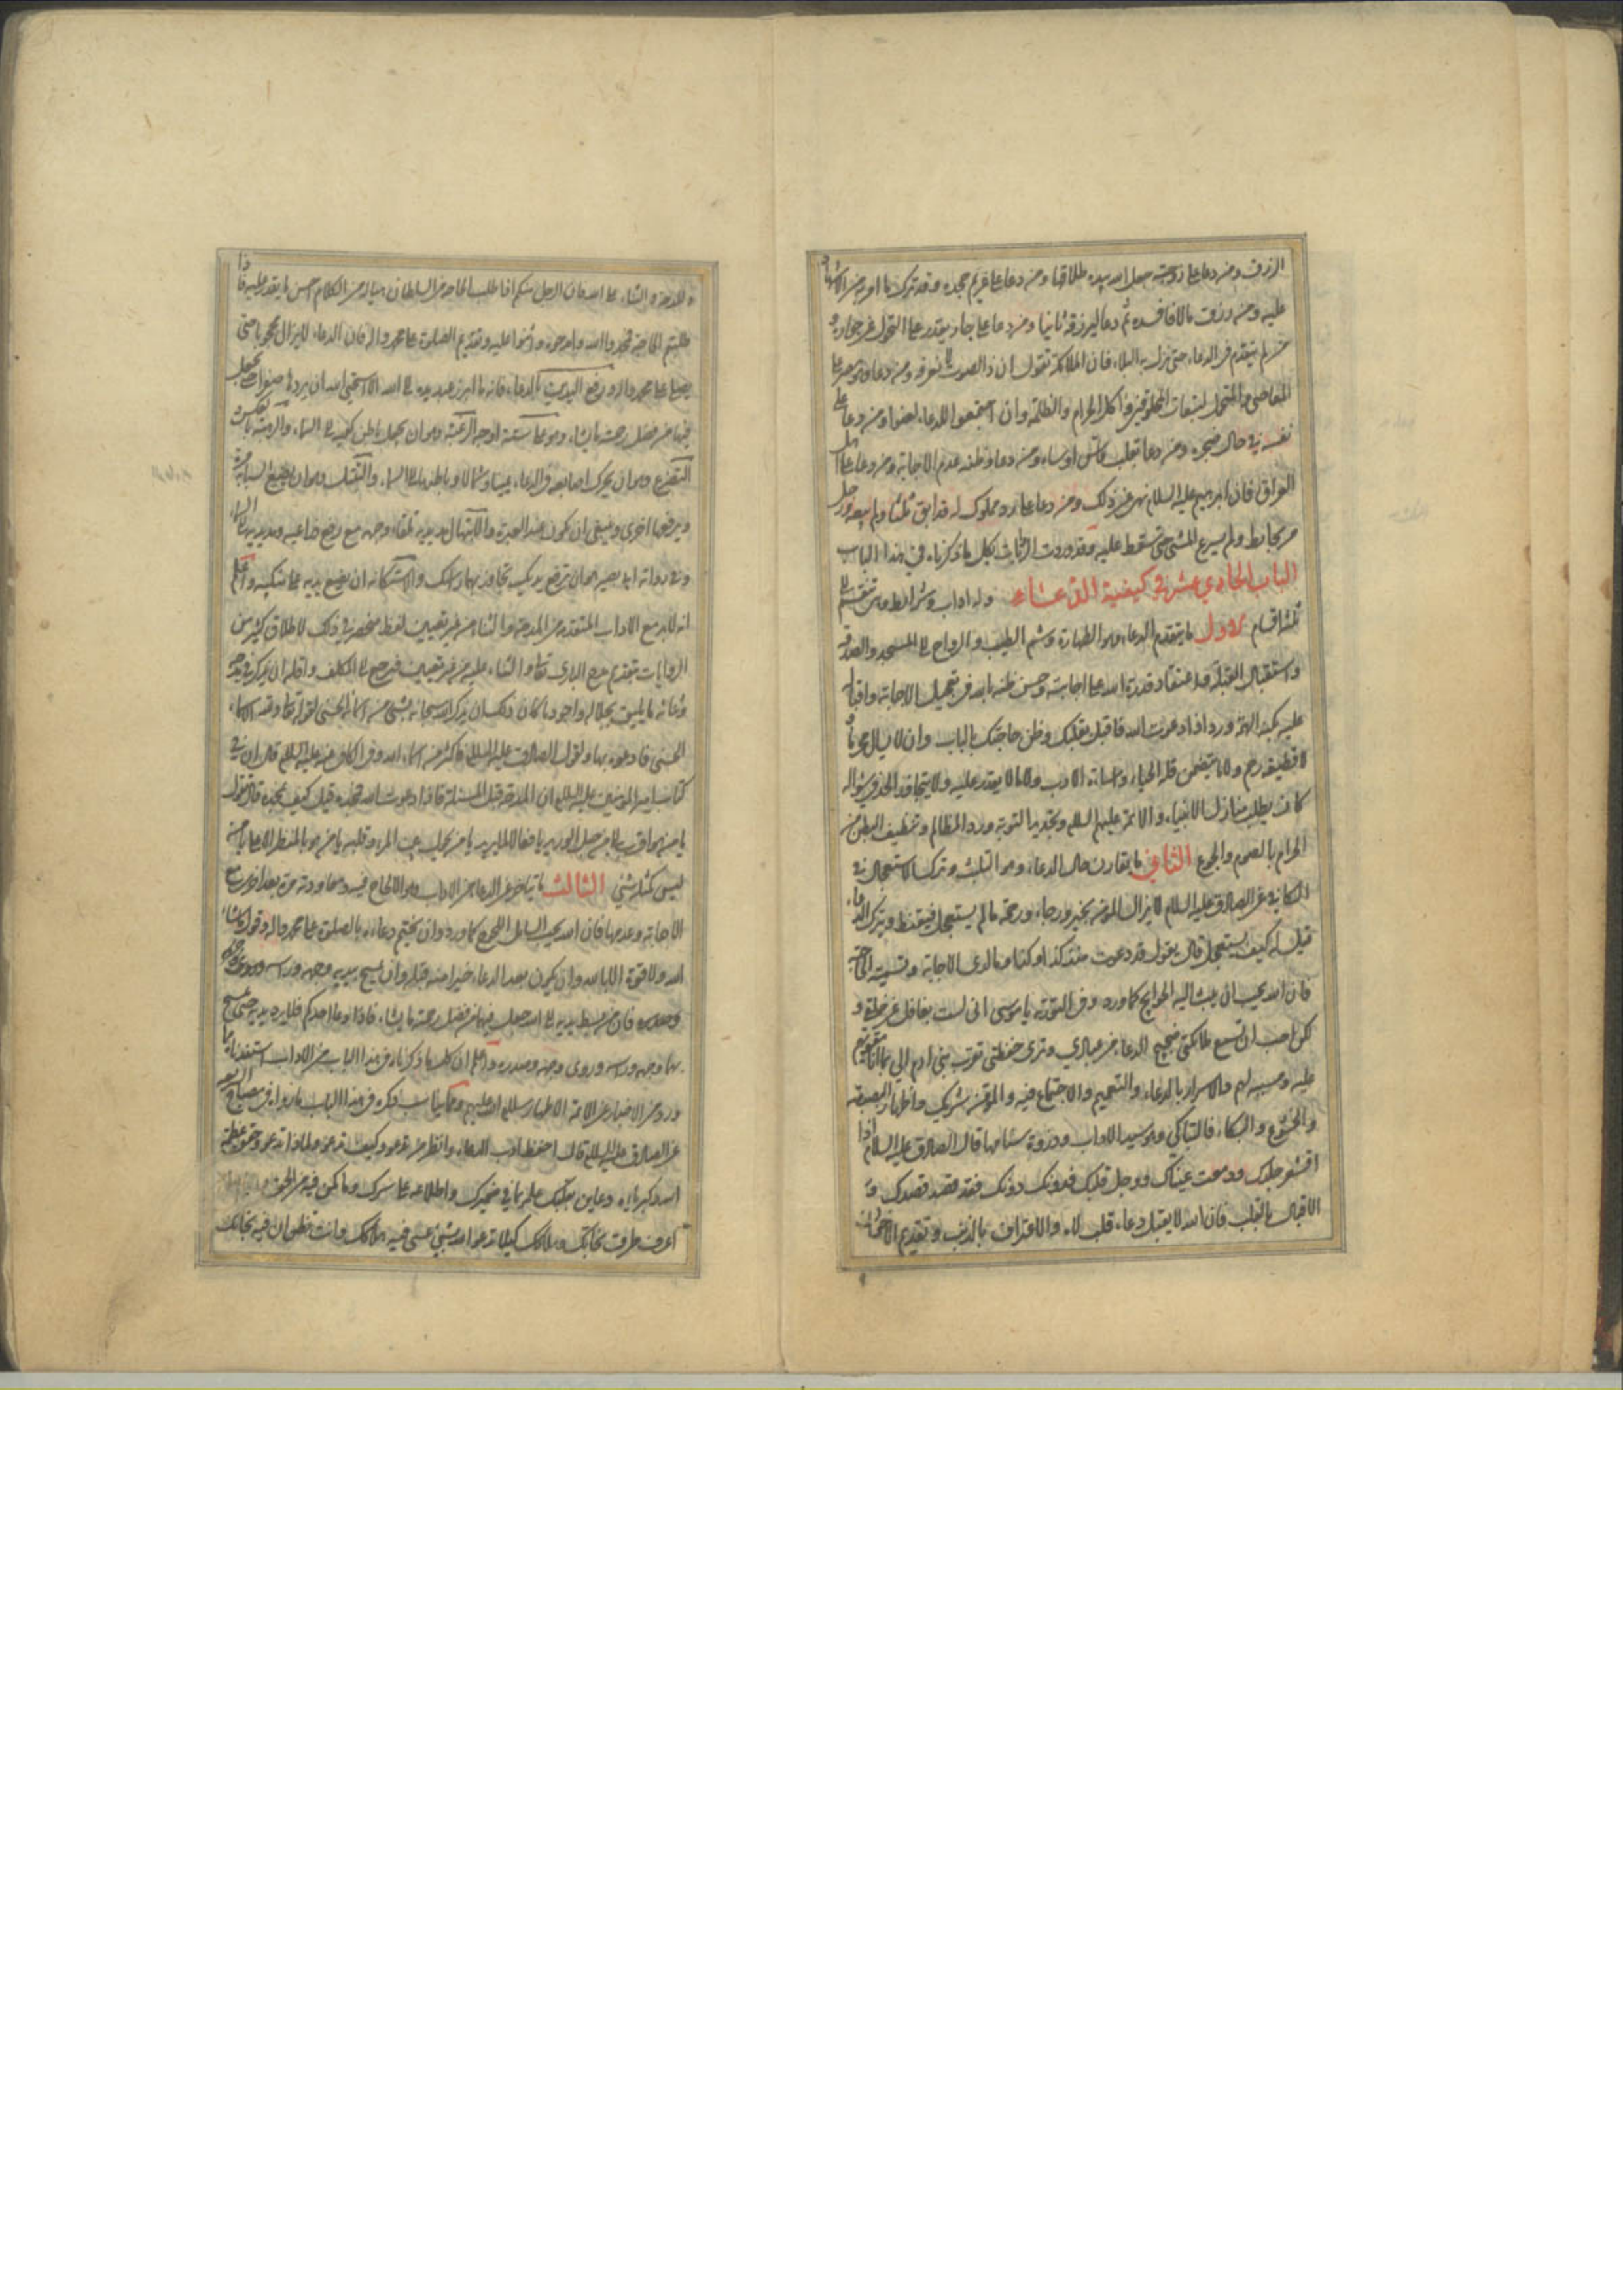 الرزق ومن دعا على زوجته جعل الله بيده طلاقها ومن دعا على غريم جحده وقد ترك ما امر به من الاشهاد
عليه ومن رزق مالا فافسده ثم دعا ليرزقه ثانيا ومن دعا على جار يقدر على التحول عن جواره و
من لم يتقدم في الدعاء حتى نزل به البلاء فان الملائكة تقول ان ذا الصوت لا نعرفه ومن دعا وهو مصر على
المعاصي والمتحمل لتبعات المخلوقين واكل الحرام والظلمة وان اجتمعوا للدعاء لعنوا ومن دعا على
نفسه في حال ضجره ومن دعا بقلب قاس او ساه ومن دعا وظنه عدم الاجابة ومن دعا على اهل
العراق فان ابرهيم عليه السلام نهى عن ذلك ومن دعا على رد مملوك له قد ابق ثلثا ولم يبعه ورجل
مر بحايط ولم يسرع المشي حتى سقط عليه وقد وردت الروايات بكل ما ذكرناه في هذا الباب
الباب الحادي عشر في كيفية الدعاء وله اداب وشرايط وهي تنقسم الى
ثلثة اقسام الاول ما يتقدم الدعاء وهو الطهارة وشم الطيب والرواح الى المسجد والصدقة
واستقبال القبلة واعتقاد قدرة الله على اجابته وحسن ظنه بالله في تعجيل الاجابة واقباله
عليه بكنه الهمة ورد اذا دعوت الله فاقبل بقلبك وظن حاجتك بالباب وان لا يسال محرما و
لا قطيعة رحم ولا ما يتضمن قلة الحياء واساءة الادب ولا ما لا يقدر عليه ولا يتجاوز الحد في سؤاله
كان يطلب منازل الانبياء والائمة عليهم السلم وتجديد التوبة ورد المظالم وتنظيف البطن من
الحرام بالصوم والجوع الثاني ما يقارن حال الدعاء وهو التلبث وترك الاستعجال ففي
الكافي عن الصادق عليه السلام لا يزال المؤمن بخير ورجاء ورحمة ما لم يستعجل فيقنط ويترك الدعاء
قيل له كيف يستعجل قال يقول قد دعوت منذ كذا وكذا وما ارى الاجابة وتسمية الحاجة
فان الله يحب ان يبث اليه الحوايج كما ورد وفي التورية يا موسى اني لست بغافل عن خلقي و
لكن احب ان تسمع ملائكتي ضجيج الدعاء من عبادي وترى حفظتي تقرب بني ادم الي بما انا مقويهم
عليه ومسببه لهم والاسرار بالدعاء والتعميم والاجتماع فيه والمؤمن شريك واظهار البصبصة
والخشوع والبكاء فالتباكي وهو سيد الاداب وذروة سنامها قال الصادق عليه السلام اذا
اقشعر جلدك ودمعت عيناك ووجل قلبك فدونك دونك فقد قصد قصدك و
الاقبال بالقلب فان الله لا يقبل دعاء قلب لاه والاعتراف بالذنب وتقديم الاخوان
والمدحة والثناء على الله فان الرجل منكم اذا طلب الحاجة من السلطان هيا له من الكلام احسن ما يقدر عليه فاذا
طلبتم الحاجة فمجدوا الله وامدحوه واثنوا عليه وتقديم الصلوة على محمد واله فان الدعاء لا يزال محجوبا حتى
يصلى على محمد واله ورفع اليدين بالدعاء فانه ما ابرز عبد يده الى الله الا استحيى الله ان يردها صفرا حتى يجعل
فيها من فضل رحمته ما يشاء وهو على ستة اوجه الرغبة وهو ان يجعل باطن كفيه الى السماء والرهبة بالعكس و
التضرع وهو ان يحرك اصابعه في الدعاء يمينا وشمالا وباطنها الى السماء والتبتل وهو ان يضع السبابة مرة
ويرفعها اخرى وينبغي ان يكون عند العبرة والابتهال مد يديه تلقاء وجهه مع رفع ذراعيه ومد يديه الى السماء
وفي رواية ابي بصير هو ان ترفع يديك تجاوز بهما راسك والاستكانة ان يضع يديه على منكبيه واعلم
انه لا بد مع الاداب المتقدمة من المدحة والثناء من غير تعيين لفظ مخصوص في ذلك لاطلاق كثير من
الروايات بتقديم مدح الباري تعالى والثناء عليه من غير تعيين فيرجع الى المكلف واقله ان يذكر في مدحه
وثنائه ما يليق بجلاله واجود ما كان ذلك ان يذكر الله سبحانه بشيء من اسمائه الحسنى لقوله تعالى ولله الاسماء
الحسنى فادعوه بها ولقول الصادق عليه السلام فاكثر من اسماء الله وفي الكافي عنه عليه السلام قال ان في
كتاب امير المؤمنين عليه السلام ان المدحة قبل المسئلة فاذا دعوت الله فمجده قيل كيف نمجده قال تقول
يا من هو اقرب الي من حبل الوريد يا فعالا لما يريد يا من يحول بين المرء وقلبه يا من هو بالمنظر الاعلى يا من
ليس كمثله شيء الثالث ما يتاخر عن الدعاء من الاداب وهو الالحاح فيه ومعاودته مرة بعد اخرى مع
الاجابة وعدمها فان الله يحب السايل اللحوح كما ورد وان يختم دعاءه بالصلوة على محمد واله وقول ما شاء
الله ولا قوة الا بالله وان يكون بعد الدعاء خيرا منه قبله وان يمسح بيديه وجهه وراسه
وصدره فان من بسط يديه الى الله جعل فيها من فضل رحمته ما يشاء فاذا دعا احدكم فلا يرد يديه حتى يمسح
بهما وجهه وراسه وروي وجهه وصدره واعلم ان كل ما ذكرناه في هذا الباب من الاداب استفدناه مما
ورد من الاخبار عن الائمة الاطهار سلام الله عليهم ومما يناسب ذكره في هذا الباب ما رواه في مصباح الشريعة
عن الصادق عليه السلام قال احفظ ادب الدعاء وانظر من تدعو وكيف تدعو ولماذا تدعو وحقق عظمة
الله وكبرياءه وعاين بقلبك علمه بما في ضميرك واطلاعه على سرك وما يكن فيه من الحق
اعرف طرق نجاتك وهلاكك كيلا تدعو الله بشيء عسى فيه هلاكك وانت تظن ان فيه نجاتك